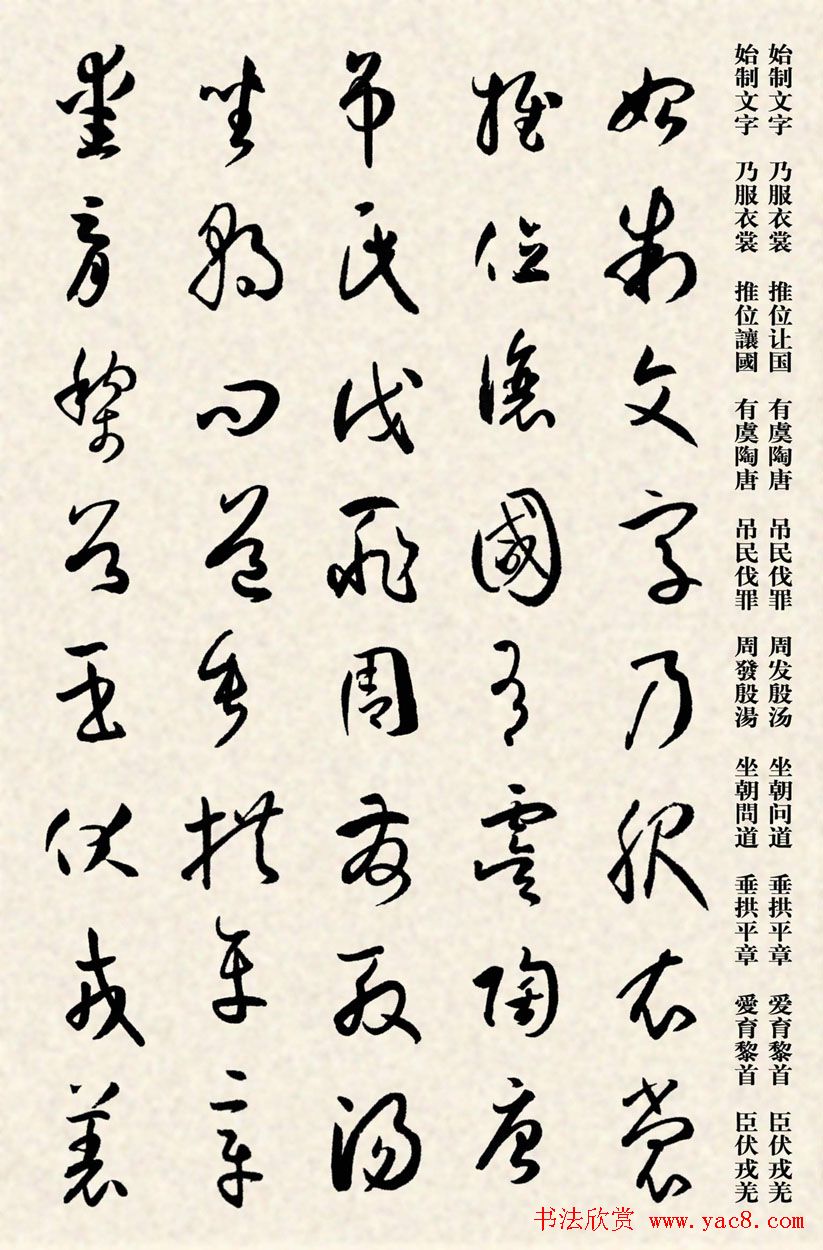 始制文字 乃服衣裳 推位让国 有虞陶唐 吊民伐罪 周发殷汤 坐朝问道 垂拱平章 爱育黎首 臣伏戎羌
始制文字 乃服衣裳 推位讓國 有虞陶唐 吊民伐罪 周發殷湯 坐朝問道 垂拱平章 愛育黎首 臣伏戎羌
始制文字乃服衣裳
推位讓國有虞陶唐
吊民伐罪周發殷湯
坐朝問道垂拱平章
愛育黎首臣伏戎羌
书法欣赏 www.yac8.com